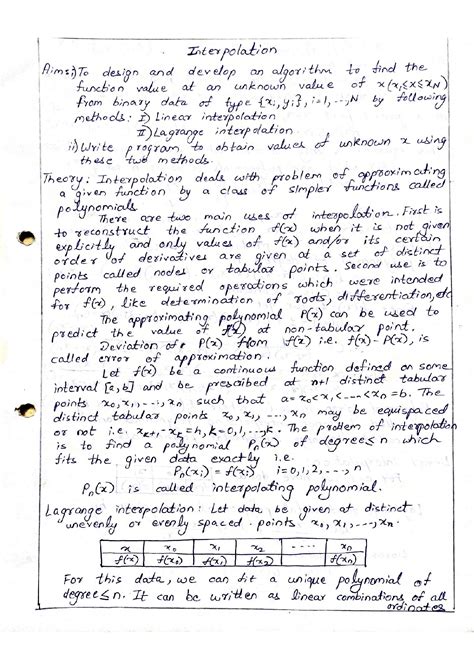 Interpolation
Aims:i) To design and develop an algorithm to find the
function value at an unknown value of x(x₁≤x≤x_N)
from binary data of type {xᵢ, yᵢ}, i=1,...,N by following
methods: I) Linear interpolation
II) Lagrange interpolation
ii) Write program to obtain values of unknown x using
these two methods.
Theory: Interpolation deals with problem of approximating
a given function by a class of simpler functions called
polynomials.
There are two main uses of interpolation. First is
to reconstruct the function f(x) when it is not given
explicitly and only values of f(x) and/or its certain
order of derivatives are given at a set of distinct
points called nodes or tabular points. Second use is to
perform the required operations which were intended
for f(x), like determination of roots, differentiation, etc
The approximating polynomial P(x) can be used to
predict the value of f(x) at non-tabular point.
Deviation of P(x) from f(x) i.e. f(x)-P(x), is
called error of approximation.
Let f(x) be a continuous function defined on some
interval [a,b] and be prescribed at n+1 distinct tabular
points x₀,x₁,...,xₙ such that a=x₀<x₁<...<xₙ=b. The
distinct tabular points x₀,x₁,...,xₙ may be equispaced
or not i.e. xₖ₊₁-xₖ=h, k=0,1,...,k. The problem of interpolation
is to find a polynomial Pₙ(x) of degree≤n which
fits the given data exactly i.e.
Pₙ(xᵢ) = f(xᵢ) i=0,1,2,...,n
Pₙ(x) is called interpolating polynomial.
Lagrange interpolation: Let data be given at distinct
unevenly or evenly spaced points x₀,x₁,...,xₙ.
x x₀ x₁ x₂ .... xₙ
f(x) f(x₀) f(x₁) f(x₂) f(xₙ)
For this data, we can fit a unique polynomial of
degree≤n. It can be written as linear combinations of all
ordinates